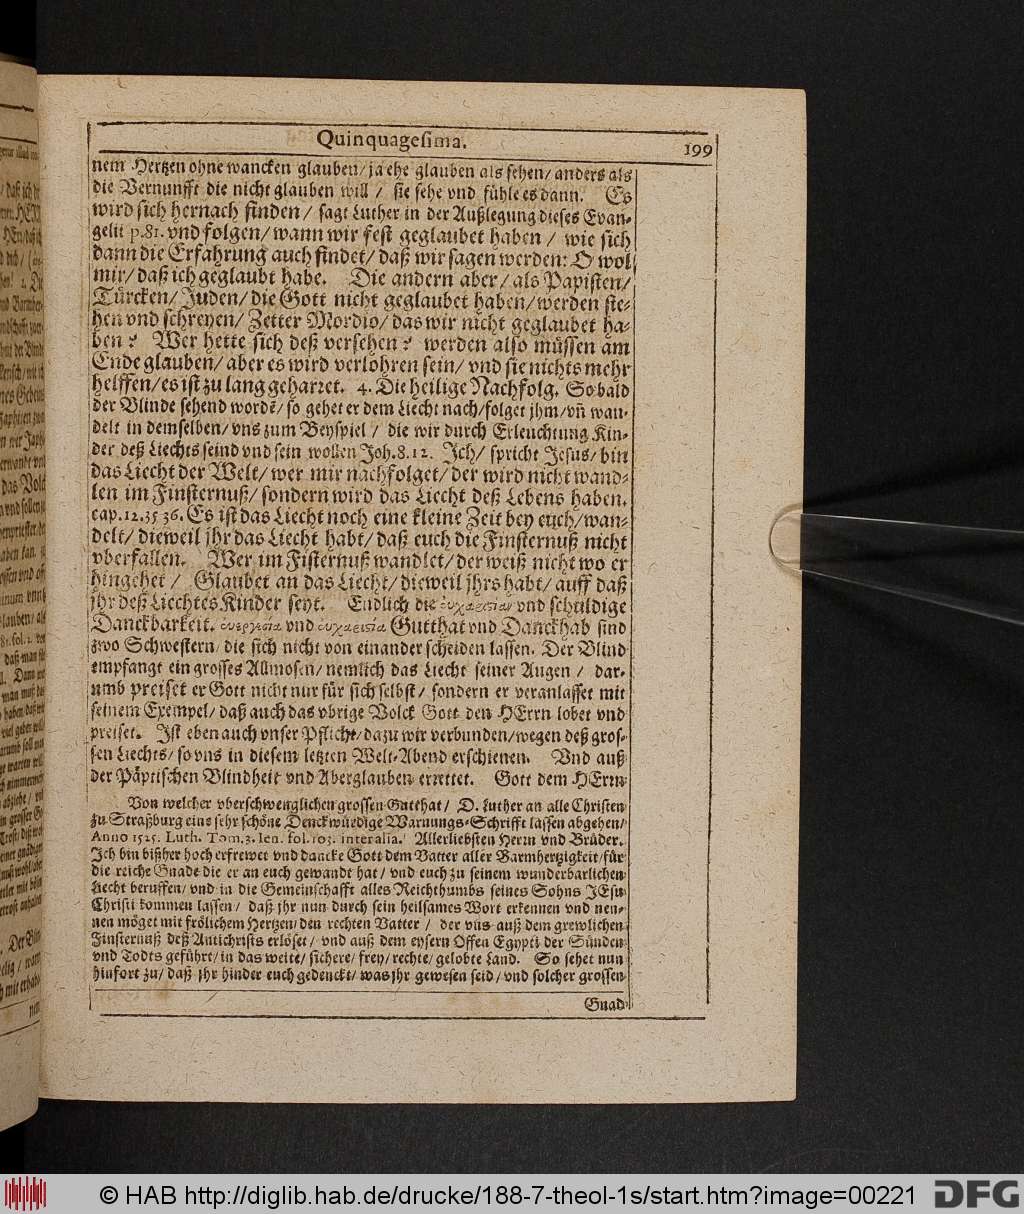 Quinquagesima.
199
nem Hertzen ohne wancken glauben/ ja ehe glauben als sehen/ anders als
die Vernunfft die nicht glauben will / sie sehe vnd fühle es dann. Es
wird sich hernach finden / sagt Luther in der Außlegung dieses Evan-
gelii p.81. vnd folgen/ wann wir fest geglaubet haben / wie sich
dann die Erfahrung auch findet/ daß wir sagen werden: O wol
mir/ daß ich geglaubt habe. Die andern aber/ als Papisten/
Türcken/ Juden/ die Gott nicht geglaubet haben/ werden ste-
hen vnd schreyen/ Zetter Mordio/ das wir nicht geglaubet ha-
ben? Wer hette sich deß versehen? werden also müssen am
Ende glauben/ aber es wird verlohren sein/ vnd sie nichts mehr
helffen/ es ist zu lang geharret. 4. Die heilige Nachfolg. So bald
der Blinde sehend wordē/ so gehet er dem Liecht nach/ folget jhm/ vñ wan-
delt in demselben/ vns zum Beyspiel / die wir durch Erleuchtung Kin-
der deß Liechts seind vnd sein wollen Joh. 8. 12. Jch/ spricht Jesus/ bin
das Liecht der Welt/ wer mir nachfolget/ der wird nicht wand-
len im Finsternuß/ sondern wird das Liecht deß Lebens haben.
cap. 12. 35 36. Es ist das Liecht noch eine kleine Zeit bey euch/ wan-
delt/ dieweil jhr das Liecht habt/ daß euch die Finsternuß nicht
vberfallen. Wer im Fisternuß wandlet/ der weiß nicht wo er
hingehet / Glaubet an das Liecht/ dieweil jhrs habt/ auff daß
jhr deß Liechtes Kinder seyt. Endlich die ἐυχαριστίαν vnd schuldige
Danckbarkeit. ἐυεργεσία vnd ἐυχαριστία Gutthat vnd Danckhab sind
zwo Schwestern/ die sich nicht von einander scheiden lassen. Der Blind
empfangt ein grosses Allmosen/ nemlich das Liecht seiner Augen / dar-
umb preiset er Gott nicht nur für sich selbst/ sondern er veranlasset mit
seinem Exempel/ daß auch das vbrige Volck Gott den HErrn lobet vnd
preiset. Ist eben auch vnser Pflicht/ dazu wir verbunden/ wegen deß gros-
sen Liechts/ so vns in diesem letzten Welt-Abend erschienen. Vnd auß
der Päptischen Blindheit vnd Aberglauben errettet. Gott dem HErrn
Von welcher vberschwenglichen grossen Gutthat/ D. Luther an alle Christen
zu Straßburg eine sehr schöne Denckwürdige Warnungs-Schrifft lassen abgehen/
Anno 1525. Luth. Tom. 3. Ien. fol. 103. inter alia. Allerliebsten Herrn vnd Brüder.
Ich bin bißher hoch erfrewet vnd dancke Gott dem Vatter aller Barmhertzigkeit/ für
die reiche Gnade die er an euch gewandt hat / vnd euch zu seinem wunderbarlichen
Liecht beruffen/ vnd in die Gemeinschafft alles Reichthumbs seines Sohns JEsu
Christi kommen lassen/ daß jhr nun durch sein heilsames Wort erkennen vnd nen-
nen möget mit frölichem Hertzen/ den rechten Vatter / der vns auß dem grewlichen
Finsternuß deß Antichrists erlöset/ vnd auß dem eysern Offen Egypti der Sünden
vnd Todts geführt/ in das weite/ sichere/ frey/ rechte/ gelobte Land. So sehet nun
hinfort zu/ daß jhr hinder euch gedenckt/ was jhr gewesen seid/ vnd solcher grossen
Gnad
© HAB http://diglib.hab.de/drucke/188-7-theol-1s/start.htm?image=00221
DFG